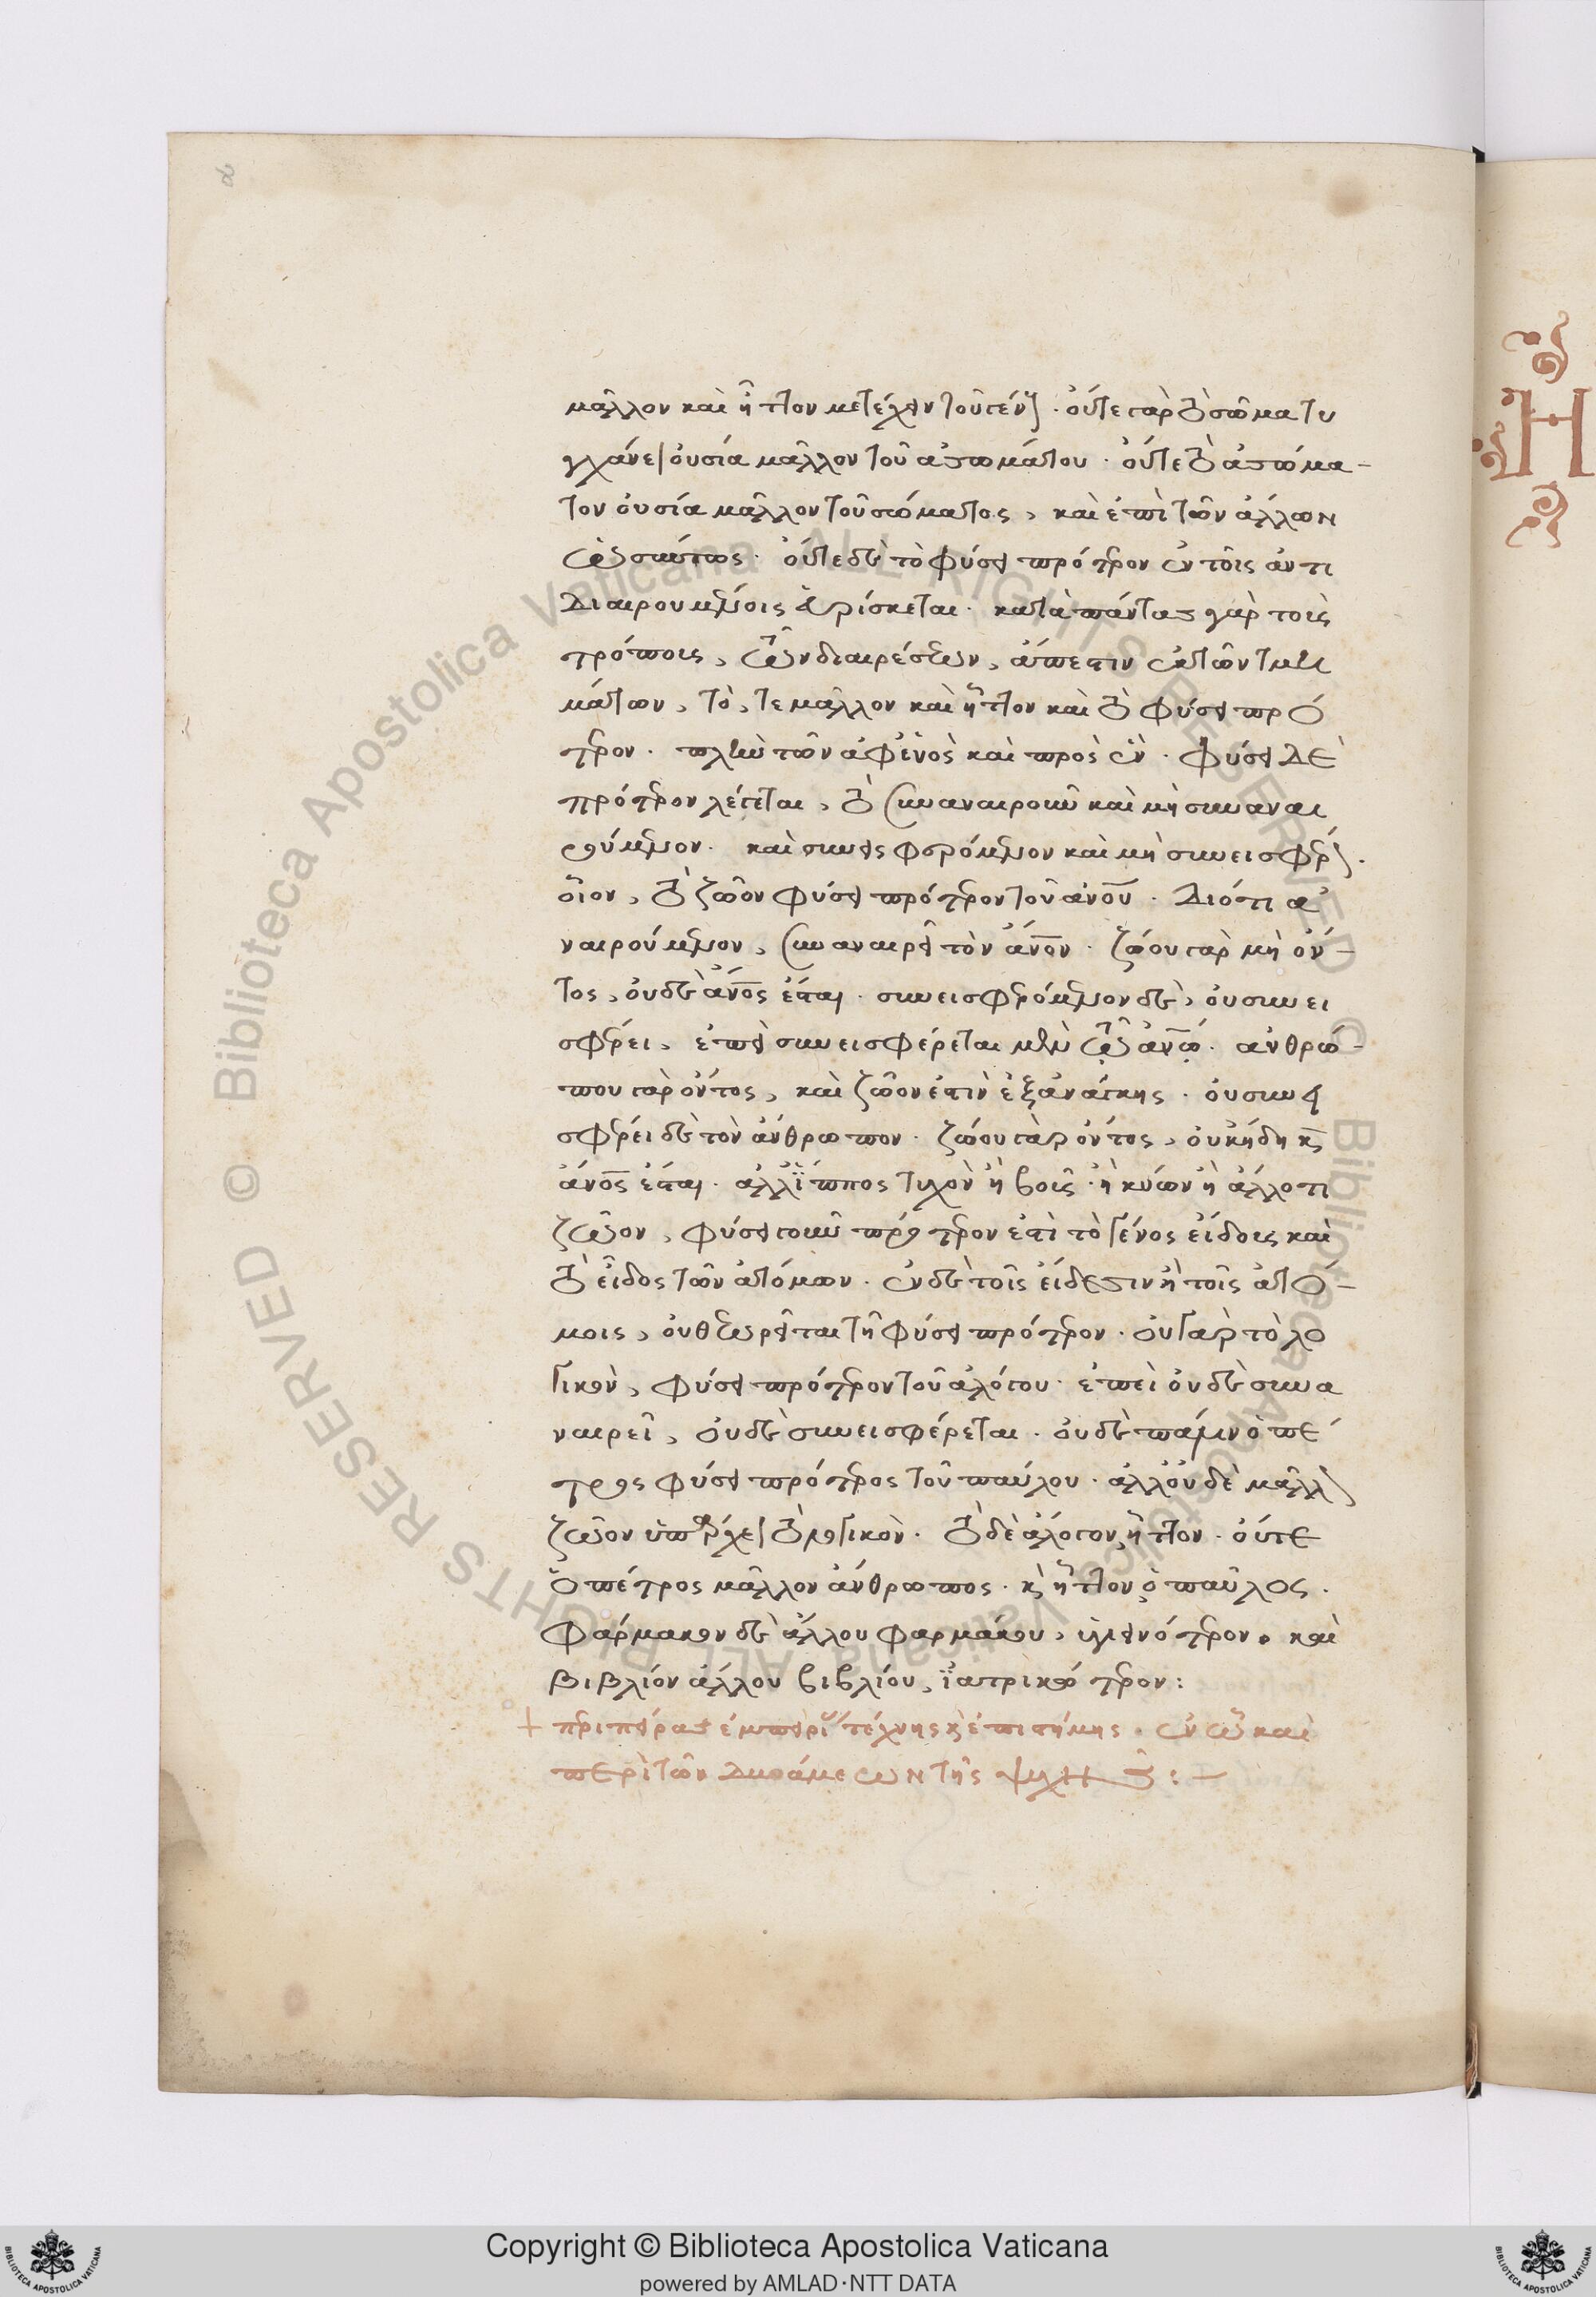 μᾶλλον καὶ ἧττον μετέχειν τοῦ γένους. οὔτε γὰρ τὸ σῶμα τυ
γχάνει οὐσία μᾶλλον τοῦ ἀσωμάτου. οὔτε τὸ ἀσώμα-
τον οὐσία μᾶλλον τοῦ σώματος, καὶ ἐπὶ τῶν ἄλλων
ὡσαύτως. οὔτε δὲ τὸ φύσει πρότερον ἐν τοῖς ἀντι
διαιρουμένοις εὑρίσκεται. κατὰ πάντας γὰρ τοὺς
τρόπους, τῶν διαιρέσεων, ἄπεστιν ἐκ τῶν τμη
μάτων, τό, τε μᾶλλον καὶ ἧττον καὶ τὸ φύσει πρό
τερον. πλὴν τῶν ἀφ' ἑνὸς καὶ πρὸς ἕν. φύσει δὲ
πρότερον λέγεται, τὸ συναναιροῦν καὶ μὴ συναναι
ρούμενον. καὶ συνεισφερόμενον καὶ μὴ συνεισφέρον.
οἷον, τὸ ζῶον φύσει πρότερον τοῦ ἀνου. διότι ἀ
ναιρούμενον, συναναιρεῖ τὸν ἄνον. ζώου γὰρ μὴ ὄν-
τος, οὐδὲ ἄνος ἔσται. συνεισφερόμενον δὲ, οὐ συνει
σφέρει, ἐπεὶ συνεισφέρεται μὲν τῷ ἀνω. ἀνθρώ-
που γὰρ ὄντος, καὶ ζῶον ἐστὶν ἐξ ἀνάγκης. οὐ συνει
σφέρει δὲ τὸν ἄνθρωπον. ζώου γὰρ ὄντος, οὐκ ἤδη κ
ἄνος ἔσται. ἀλλ' ἵππος τυχὸν ἢ βοῦς ἢ κύων ἢ ἄλλο τι
ζῶον, φύσει γοῦν πρότερον ἐστὶ τὸ γένος εἴδους καὶ
τὸ εἶδος τῶν ἀτόμων. ἐν δὲ τοῖς εἴδεσιν ἢ τοῖς ἀτό-
μοις, οὐ θεωρεῖται τῇ φύσει πρότερον. οὐ γὰρ τὸ λο
γικὸν, φύσει πρότερον τοῦ ἀλόγου. ἐπεὶ οὐδὲ συνα
ναιρεῖ, οὐδὲ συνεισφέρεται. οὐδὲ πάλιν ὁ πέ
τρος φύσει πρότερος τοῦ παύλου. ἀλλ' οὐδὲ μᾶλλον
ζῶον ὑπάρχει τὸ λογικὸν. τὸ δὲ ἄλογον, ἧττον. οὔτε
ὁ πέτρος μᾶλλον ἄνθρωπος. κ ἧττον ὁ παῦλος.
φάρμακον δὲ ἄλλου φαρμάκου, ὑγιεινότερον. καὶ
βιβλίον ἄλλου βιβλίου, ἰατρικώτερον:
+ περὶ πείρας ἐμπειρίας τέχνης κ ἐπιστήμης. ἐν ᾧ καὶ
περὶ τῶν δυνάμεων τῆς ψυχῆς: —
Copyright © Biblioteca Apostolica Vaticana
powered by AMLAD·NTT DATA